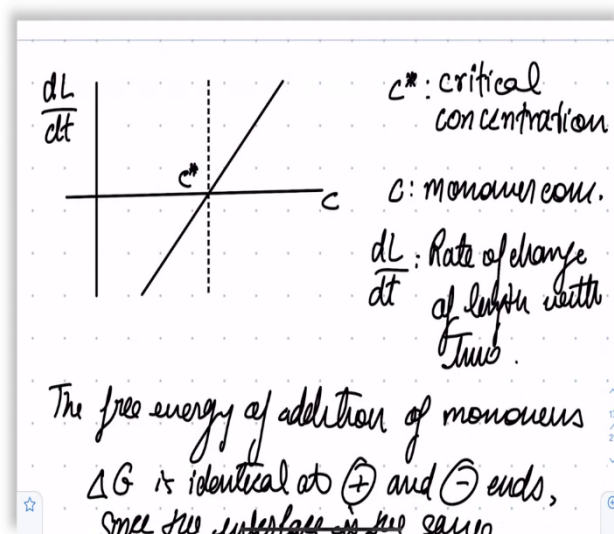 dL
dt
c*
c
c*: critical
concentration
c: monomer conc.
dL
dt
: Rate of change
of length with
Time.
The free energy of addition of monomers
ΔG is identical at ⊕ and ⊖ ends,
since the interface is the same